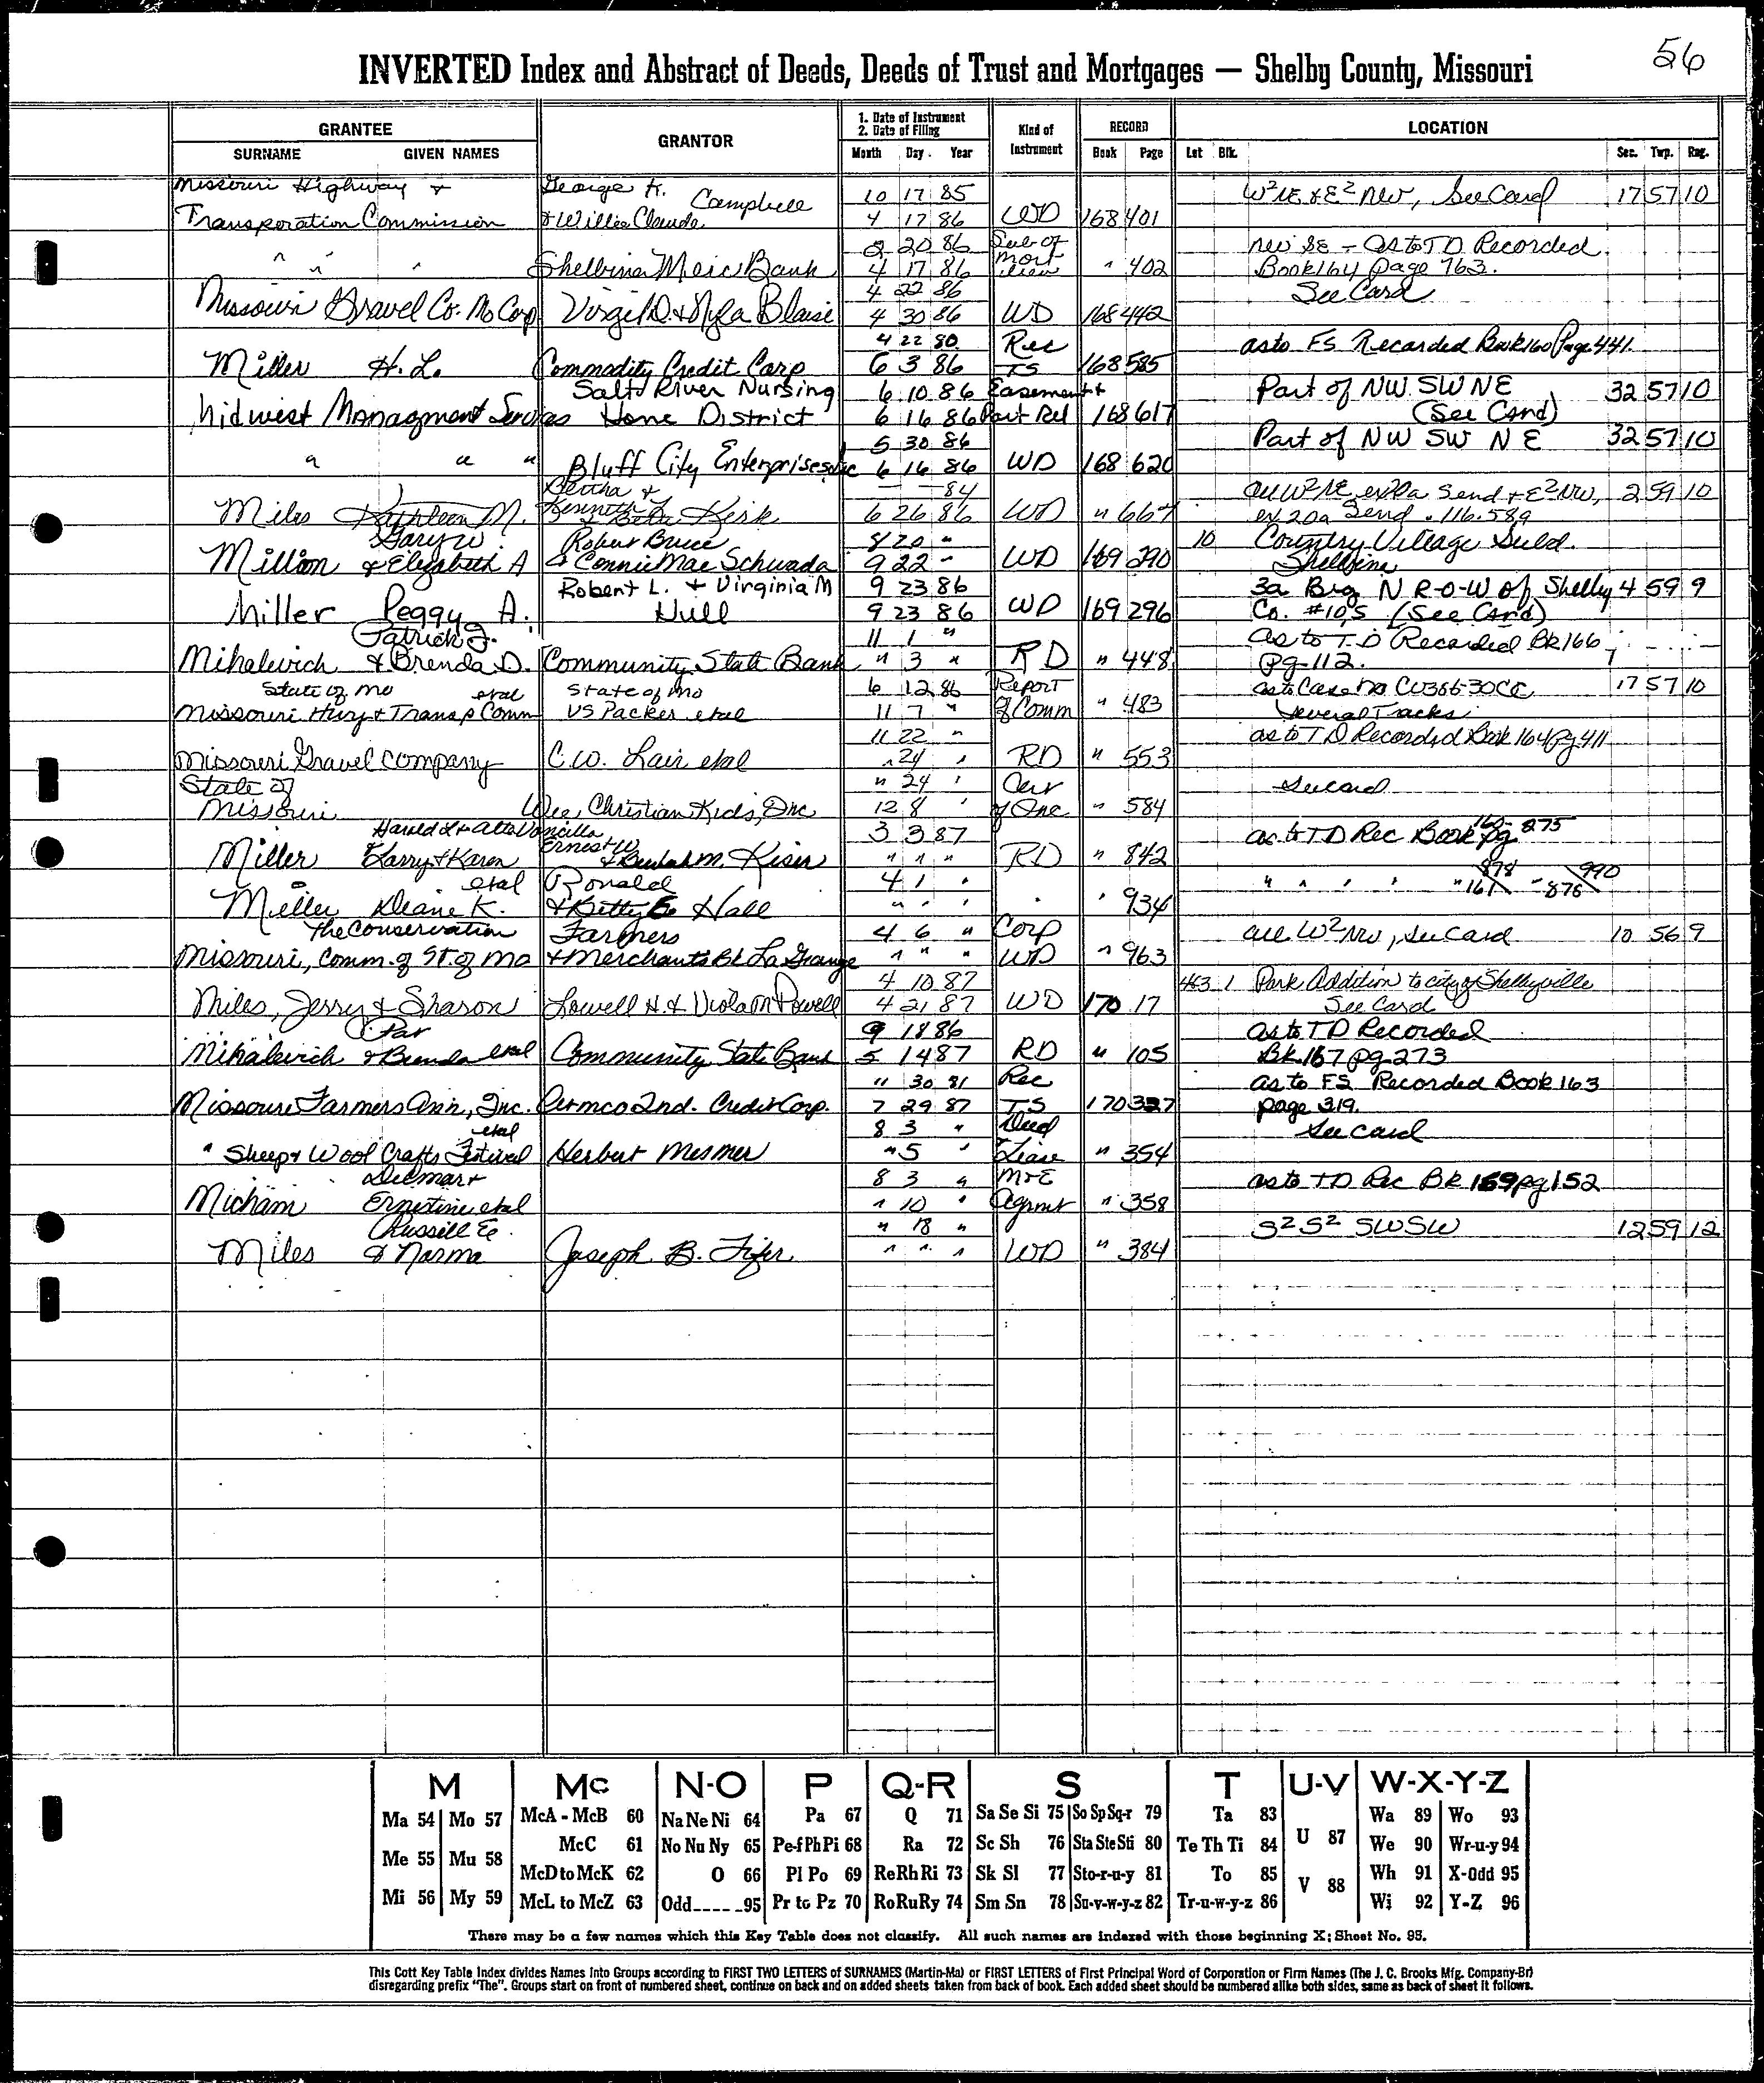 56
INVERTED Index and Abstract of Deeds, Deeds of Trust and Mortgages — Shelby County, Missouri
GRANTEE
SURNAME GIVEN NAMES
GRANTOR
1. Date of Instrument
2. Date of Filing
Month Day Year
Kind of Instrument
RECORD
Book Page
LOCATION
Lot Blk. Sec. Twp. Rng.
Missouri Highway + George K. Campbell 10 17 85 W²NE & E² NW, See Card 17 57 10
Transporation Commission & Willie Claude 4 17 86 WD 168 401
" " " 2 20 86 Sub of NW SE - As to TD Recorded
Shelbina Merc Bank 4 17 86 Mort lien " 402 Book 164 page 763.
4 22 86 See Card
Missouri Gravel Co. Mo Corp Virgil D. & Nyla Blaise 4 30 86 WD 168 442
4 22 80 Rec as to FS Recorded Book 160 Page 441.
Miller H. L. Commodity Credit Corp 6 3 86 TS 168 585
Salt River Nursing 6 10 86 Easement + Part of NW SW NE 32 57 10
Midwest Managment Services Home District 6 16 86 Part Rel 168 617 (See Card)
5 30 86 Part of NW SW NE 32 57 10
" " " Bluff City Enterprises, Inc 6 16 86 WD 168 620
Bertha & — — 84 all W²NE, ex 12a Send + E²NW, 2 59 10
Miles Kathleen M. Kenneth L. Kirk 6 26 86 WD " 667 ex 20a Send. 116.589
Gary W. Robert Bruce 8 20 " 10 Country Village Subd.
Million & Elizabeth A & Connie Mae Schwada 9 22 " WD 169 290 Shelbina
Robert L. & Virginia M 9 23 86 3a Brg N R-O-W of Shelby 4 59 9
Miller Peggy A. Hull 9 23 86 WD 169 296 Co. #105 (See Card)
Patrick J. 11 1 " as to T.D Recorded Bk 166
Mihalevich & Brenda D. Community State Bank " 3 " RD " 448 pg 112.
State of Mo etal State of Mo 6 12 86 Report as to Case No CV386-30CC 17 57 10
Missouri Hwy & Transp Comm VS Packer etal 11 7 " of Comm " 483 Several Tracks
11 22 " as to TD Recorded Book 164 pg 411
Missouri Gravel Company C.W. Lair etal " 24 " RD " 553
State of " 24 " Cer See card
Missouri Wee Christian Kids, Inc 12 8 " of Inc " 584
Harold L & Alta Doncilla Ernest W 3 3 87 as to TD Rec Book 160 pg 275
Miller Larry & Karen & Beulah M. Kiser " " " RD " 842
etal Ronald 4 1 " " " " " " 161 878 " 876 990
Miller Diane K. & Betty E Hall " " " " " 934
The Conservation Farmers 4 6 " Corp all W² NW, See Card 10 56 9
Missouri, Comm. of St. of Mo & Merchants Bk La Grange " " " WD " 963
4 10 87 463 1 Park Addition to city of Shelbyville
Miles, Jerry & Sharon Lowell H. & Viola M Powell 4 21 87 WD 170 17 See Card
Pat 9 18 86 as to TD Recorded
Mihalevich & Brenda etal Community State Bank 5 14 87 RD " 105 Bk 167 pg 273
11 30 81 Rec as to FS Recorded Book 163
Missouri Farmers Ass'n, Inc. Permco Ind. Credit Corp. 7 29 87 TS 170 327 page 319.
etal 8 3 " Deed See Card
" Sheep & Wool Crafts Festival Herbert Mesmer " 5 " Lease " 354
Delmar & 8 3 " M+E as to TD Rec Bk 169 pg 152
Micham Ernestine etal " 10 " Agrmt " 358
Russell E. " 18 " S² S² SW SW 12 59 12
Miles & Norma Joseph B. Fifer " " " WD " 384
M Mc N-O P Q-R S T U-V W-X-Y-Z
Ma 54 Mo 57 McA - McB 60 Na Ne Ni 64 Pa 67 Q 71 Sa Se Si 75 So Sp Sq-r 79 Ta 83 U 87 Wa 89 Wo 93
Me 55 Mu 58 McC 61 No Nu Ny 65 Pe-f Ph Pi 68 Ra 72 Sc Sh 76 Sta Ste Sti 80 Te Th Ti 84 We 90 Wr-u-y 94
McD to McK 62 O 66 Pl Po 69 Re Rh Ri 73 Sk Sl 77 Sto-r-u-y 81 To 85 V 88 Wh 91 X-Odd 95
Mi 56 My 59 McL to McZ 63 Odd 95 Pr to Pz 70 Ro Ru Ry 74 Sm Sn 78 Su-v-w-y-z 82 Tr-u-w-y-z 86 Wi 92 Y-Z 96
There may be a few names which this Key Table does not classify. All such names are indexed with those beginning X; Sheet No. 95.
This Cott Key Table Index divides Names into Groups according to FIRST TWO LETTERS of SURNAMES (Martin-Ma) or FIRST LETTERS of First Principal Word of Corporation or Firm Names (The J. C. Brooks Mfg. Company-Br)
disregarding prefix "The". Groups start on front of numbered sheet, continue on back and on added sheets taken from back of book. Each added sheet should be numbered alike both sides, same as back of sheet it follows.